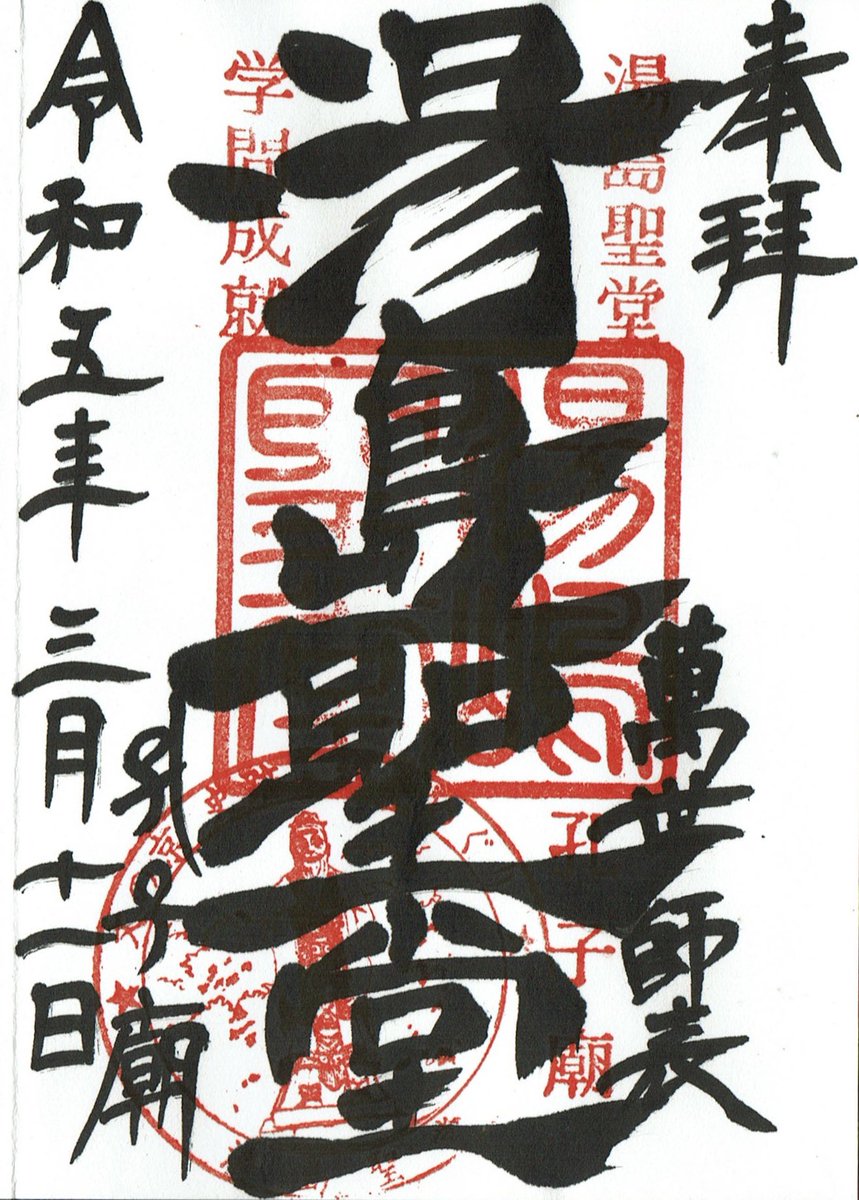 奉拝
萬世師表
湯島聖堂
孔子廟
湯島聖堂
学問成就
孔子廟
令和五年三月十一日